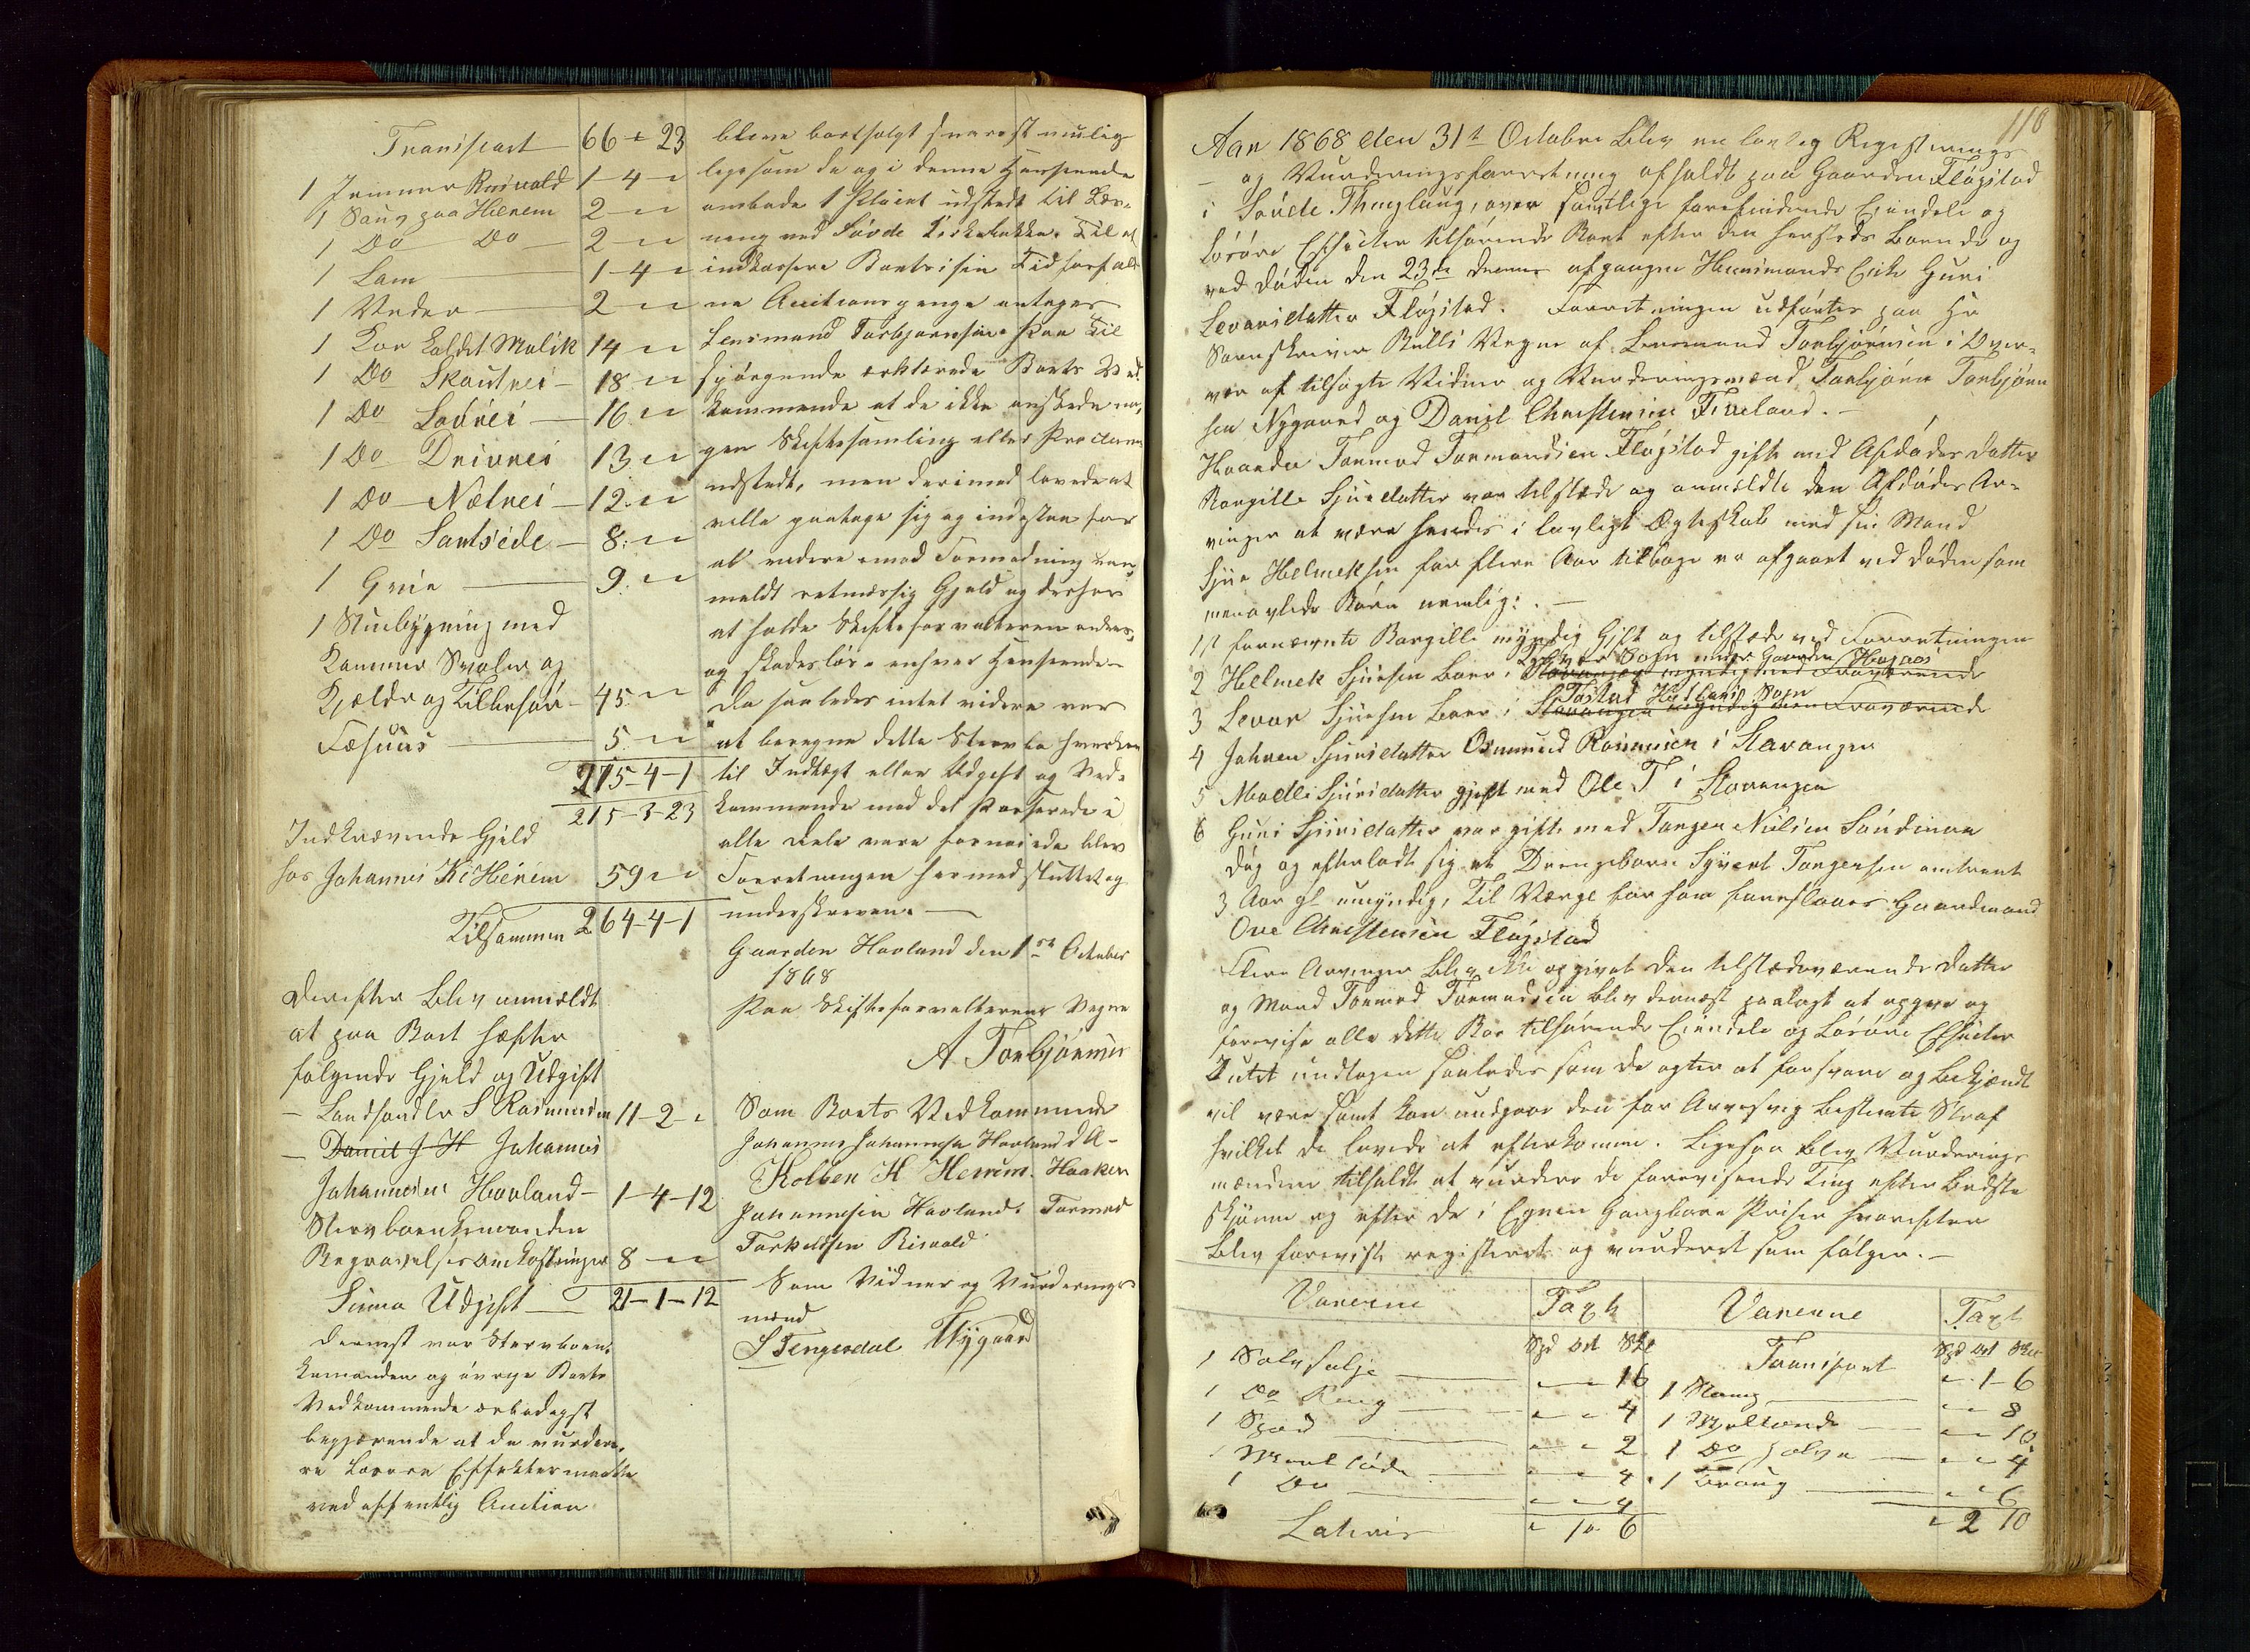 Transport 66 - 23
1 Jemmer Risvold 1-4-"
1 Sauv paa Hienem 2 - "
1 Do Do 2 - "
1 Lam 1-4-"
1 Veder 2 - "
1 Koe kaldet Malik 14 - "
1 Do Skautnei 18 - "
1 Do Lournei 16 - "
1 Do Drivnei 13 - "
1 Do Nætnei 12 - "
1 Do Santsede 8 - "
1 Qvie 9 - "
1 Stuebygning med
Kammer Svaler og
Kjelder og Tilbehør 45 - "
Fæhuus 5 - "
275-4-1
215-3-23
Indkrævende Gjeld
hos Johannes K Hienem 59 "
Tilsammen 264-4-1
Derefter blev anmeldt
at paa Boet hæfter
følgende Gjeld og Udgift
- Landhandler S Rasmussen 11-2-"
- Daniel J H Johannes
Johannesen Havland 1-4-12
Stervboenkemanden
Begravelsesomkostninger 8 - "
Suma Udgift 21-1-12
Dernæst var Stervboen-
kemanden og øvrige Boets
Vedkommende ærbødigst
begjærende at de vurdere-
re Løsøre Effekter maatte
ved offentlig Auction
bleve bortsolgt snarest mulig
ligesom de og i denne Henseende
ombade 1 Placat udstedt til Læs-
ning ved Søvde Kirkebakke. Til at
indkassere Boets sin Tid forfald-
ne Auctionspenge antages
Lensmand Torbjørnsen. Paa Til
spørgende erklærede Boets Ved-
kommende at de ikke ønskede no-
gen Skiftesamling eller Proclama
udstedt, men derimod lovede at
ville paatage sig og indestaa for
al videre imod Formodning an-
meldt retmæssig Gjeld og derfor
at holde Skifteforvalteren anden-
og skadesløs i enhver Henseende
Da saaledes intet videre var
at beregne dette Stervbo hverken
til Indtægt eller Udgift og Ved-
kommende med det Passerede i
alle Dele vare fornøiede blev
Forretningen hermed sluttet og
underskreven.
Gaarden Havland den 1ste October
1868
Paa Skifteforvalterens Vegne
A Torbjørnsen
Som Boets Vedkommende
Johannes Johannesen Havland d A-
Kolben H Hemm. Haaken
Johannesen Havland. Tormod
Torkeldsen Risvold
Som Vidner og Vurderings
mænd
S Tengesdal Nygaard
118
Aar 1868 den 31te October blev en lovlig Registerings
- og Vurderingsforretning afholdt paa Gaarden Fløgstad
i Soude Thinglaug, over samtlige forefindende Eiendele og
Løsøre Effecter tilhørende Boet efter den herstæds boende og
ved Døden den 23de dennes afgangen Huusmands Enke Guri
Levarsdatter Fløgstad. Forretningen udførtes paa Hr
Sorenskriver Bulls Vegne af Lensmand Torbjørnsen i Over-
vær af tilsagte Vidner og Vurderingsmænd Torbjørn Torbjørn
sen Nygaard og Daniel Christensen Fiveland. -
Gaarden Tormod Tormodsen Fløgstad gift med Afdødes Datter
Borgille Sjursdatter var tilstæde og anmeldte den Afdødes Ar-
vinger at være hendes i lovligt Ægteskab med sin Mand
Sjur Helmiksen for flere Aar tilbage er afgaaet ved Døden sam
menavlede Børn nemlig:. -
1st fornævnte Borgille myndig Gift og tilstæde ved Forretningen
2 Helmek Sjursen boer i Stavanger myndig med Fraværende
3 Levor Sjursen boer i Stavanger myndig men Fraværende
4 Johren Sjursdatter Osmund Rasmusen i Stavanger
5 Madli Sjursdatter gjift med Ole T i Stavanger
6 Guri Sjursdatter var gift med Torger Nielsen Søndenaa
død og efterladt sig et Drengebarn Syvert Torgersen omtrent
3 Aar gl umyndig, Til Værge for ham foreslaaes Gaardmand
Ove Christensen Fløgstad
Flere Arvinger blev ikke opgivet den tilstædeværende Datter
og Mand Tormod Tormodsen blev dernæst paalagt at opgive og
forevise alle dette Boe tilhørende Eiendele og Løsøre Effecter
Intet undtagen saaledes som de agter at forsvare og bekjendt
vil være samt kan undgaae den for Arvesvig bestemte Straf
hvilket de lovede at efterkomme. Ligesaa blev Vurderings
mændene tilholdt at vurdere de forevisende Ting efter bedste
Skjønne og efter de i Egnen Gangbare Priser hvorefter
blev foreviste registeret og vurderet som følger. -
Varerne Taxt Varerne Taxt
Spd Ort Skl Spd Ort Skl
1 Sølvsølje " " 16 Transport " 1 - 6
1 Do Ring " " 4 1 Stamp " " 8
1 Spad " " 2 1 " " 10
" " 4 1 Do halve " " 4
1 Do " " 4 1 " " 6
Lateris " 1 " 6 " 2 10